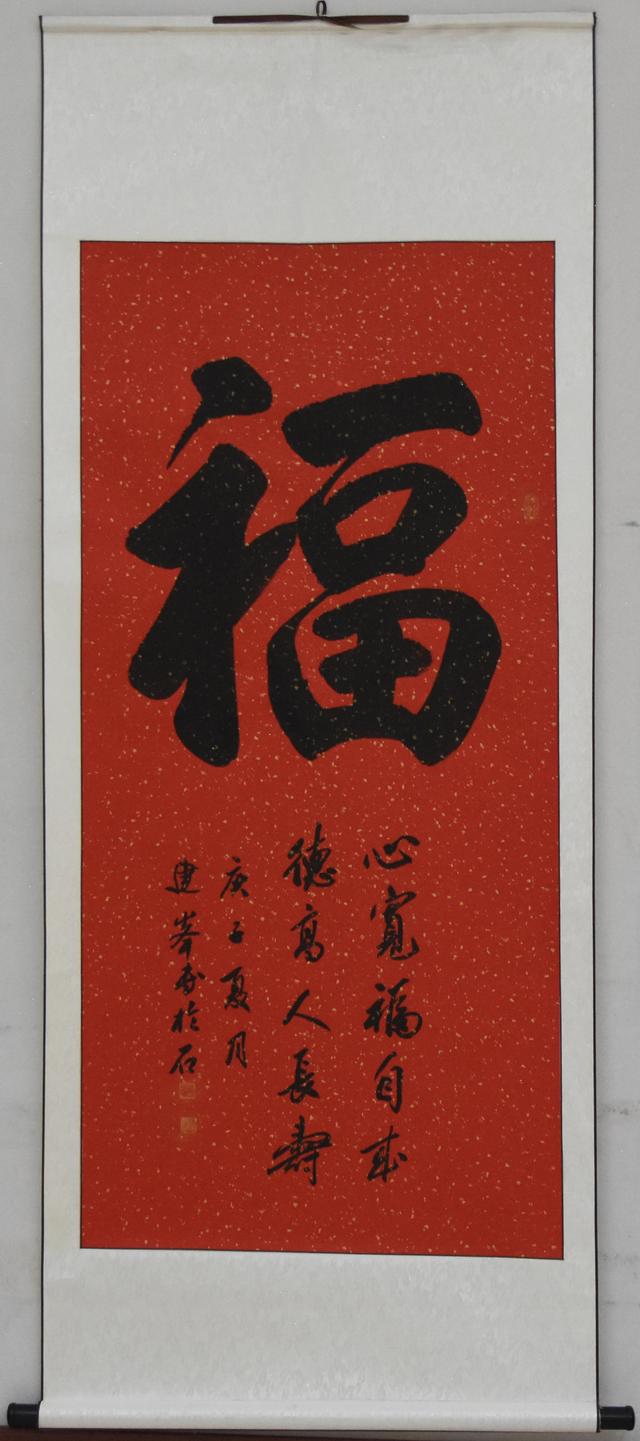 福
心寬福自来
德高人長壽
庚子夏月
建峯書於石